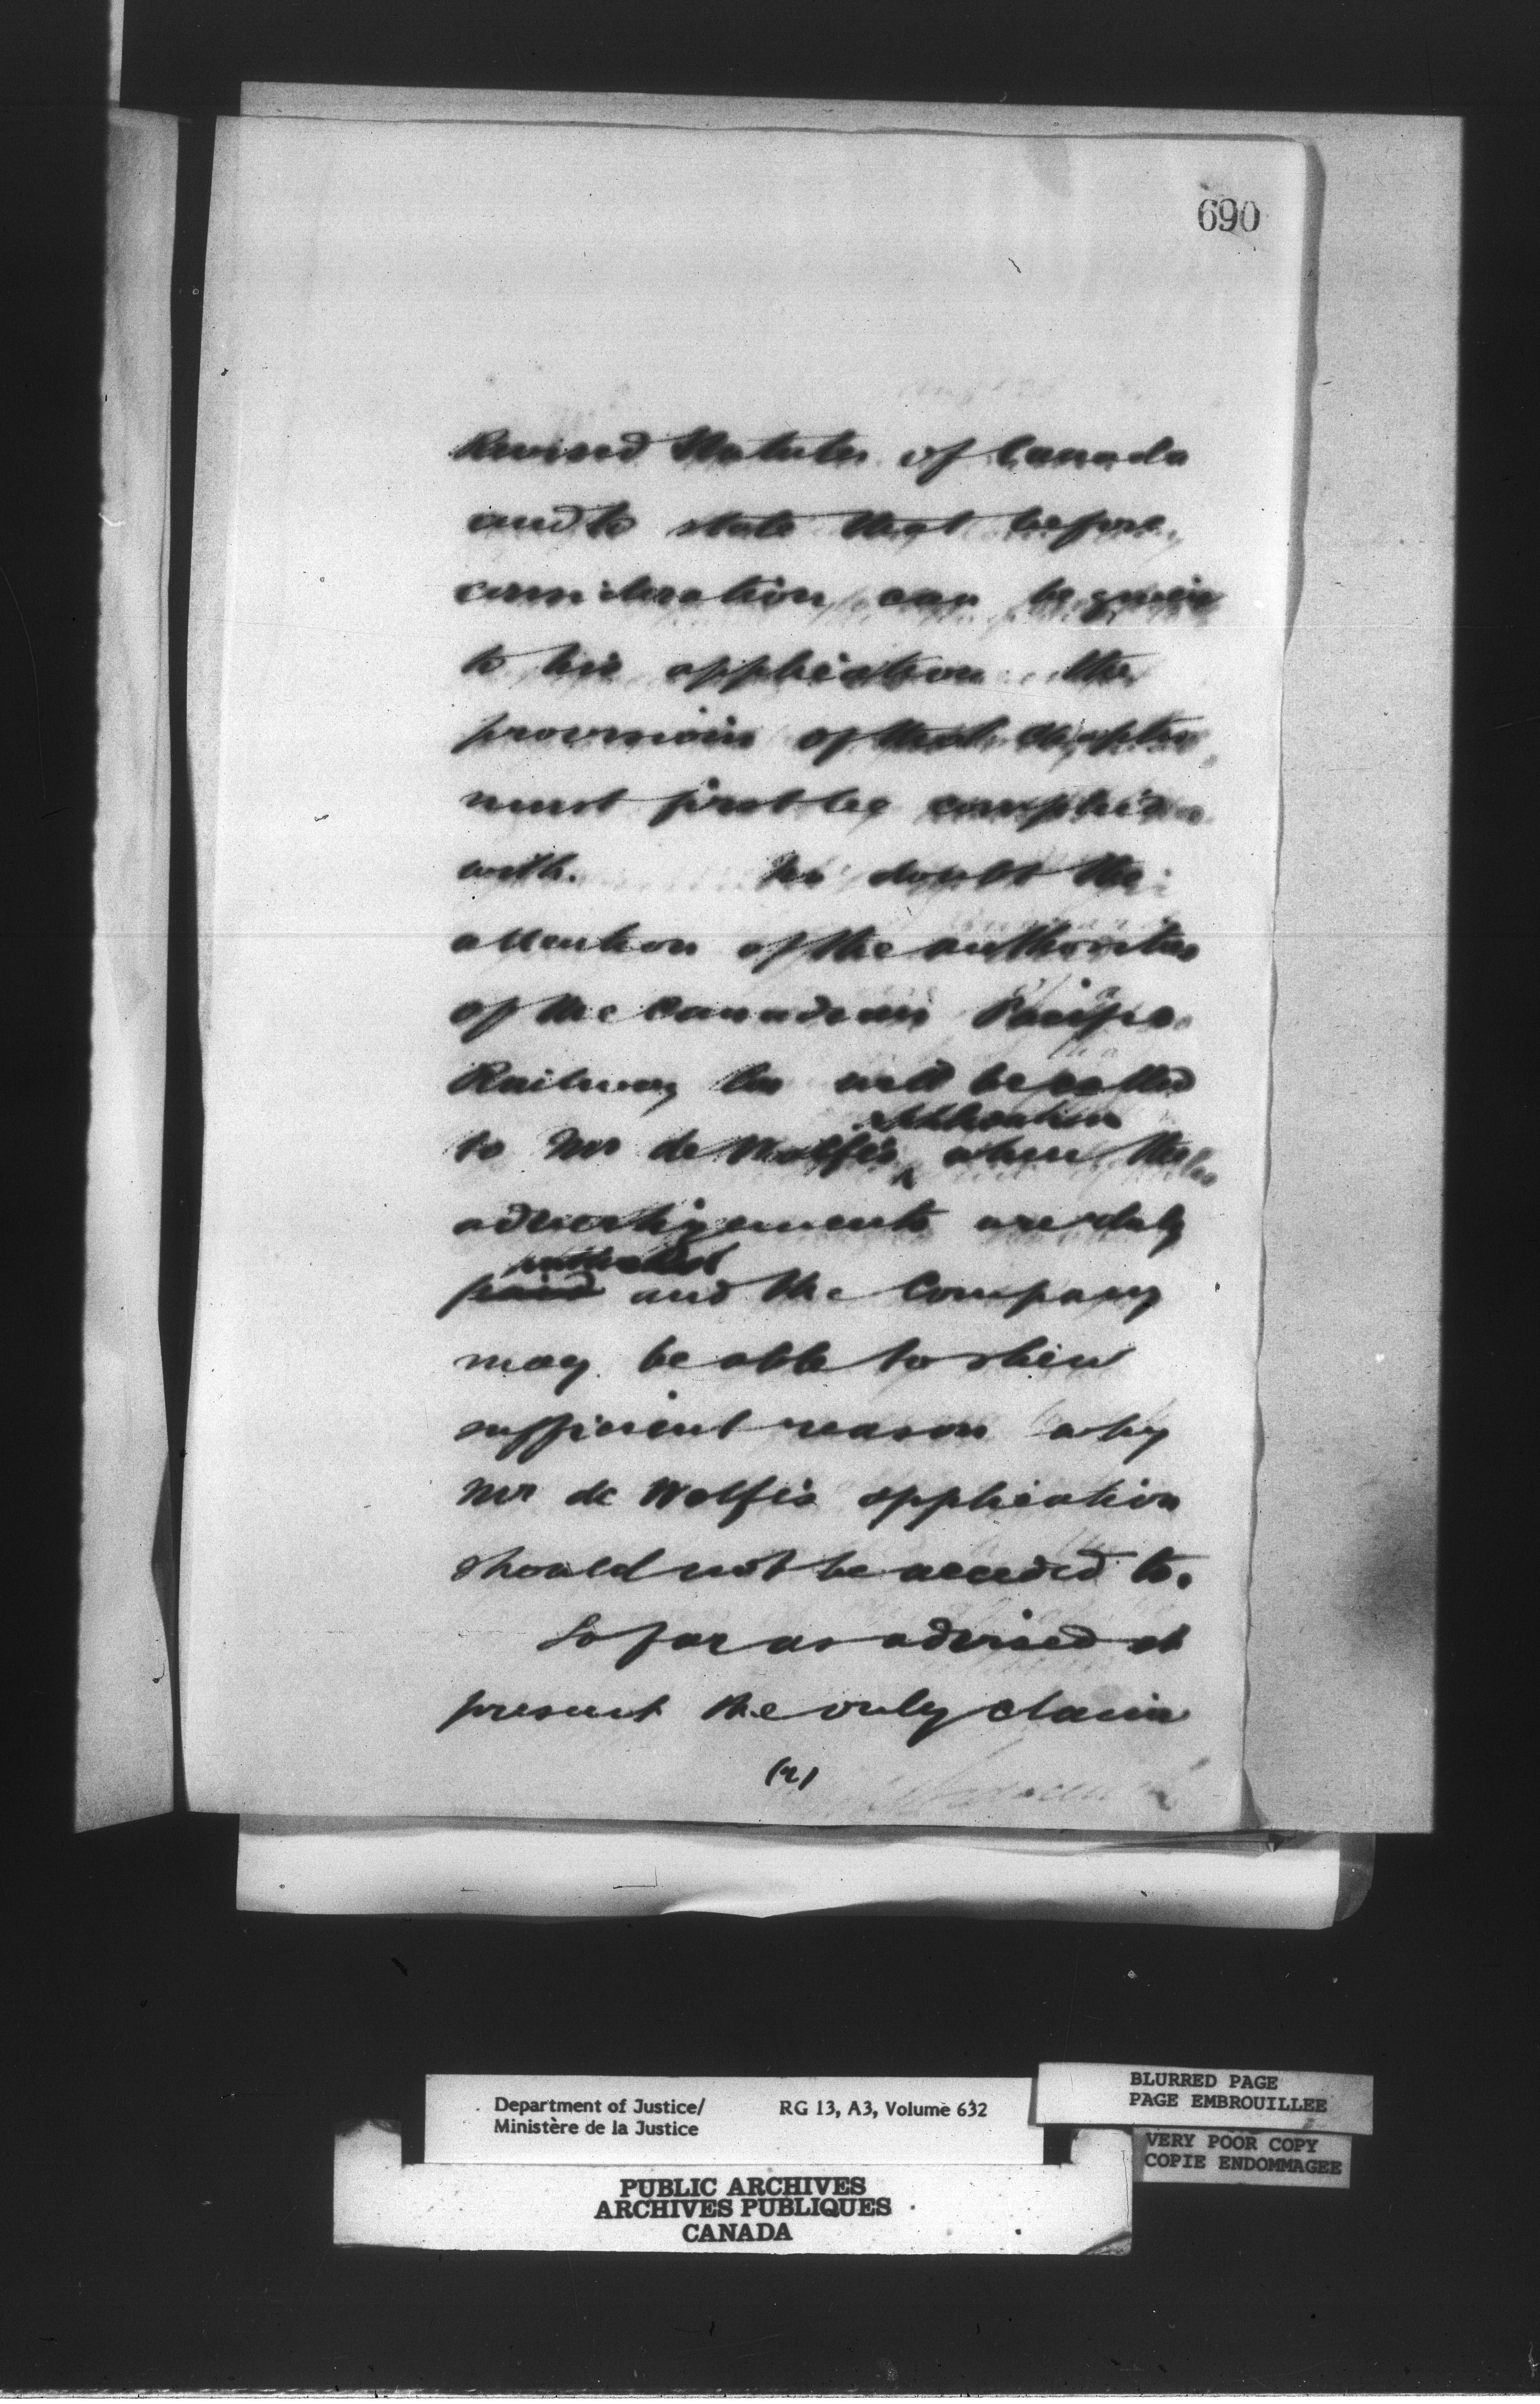 690
Revised Statutes of Canada
and to state that before
consideration can be given
to his application the
provisions of that chapter
must first be complied
with. No doubt the
attention of the authorities
of the Canadian Pacific
Railway Co will be called
application
to Mr de Wolfe's ^ when the
advertisements are duly
published
paid and the Company
may be able to shew
sufficient reason why
Mr de Wolfe's application
should not be acceded to.
So far as advised at
present the only claim
(2)
Department of Justice/
Ministère de la Justice
RG 13, A3, Volume 632
BLURRED PAGE
PAGE EMBROUILLEE
VERY POOR COPY
COPIE ENDOMMAGEE
PUBLIC ARCHIVES
ARCHIVES PUBLIQUES
CANADA